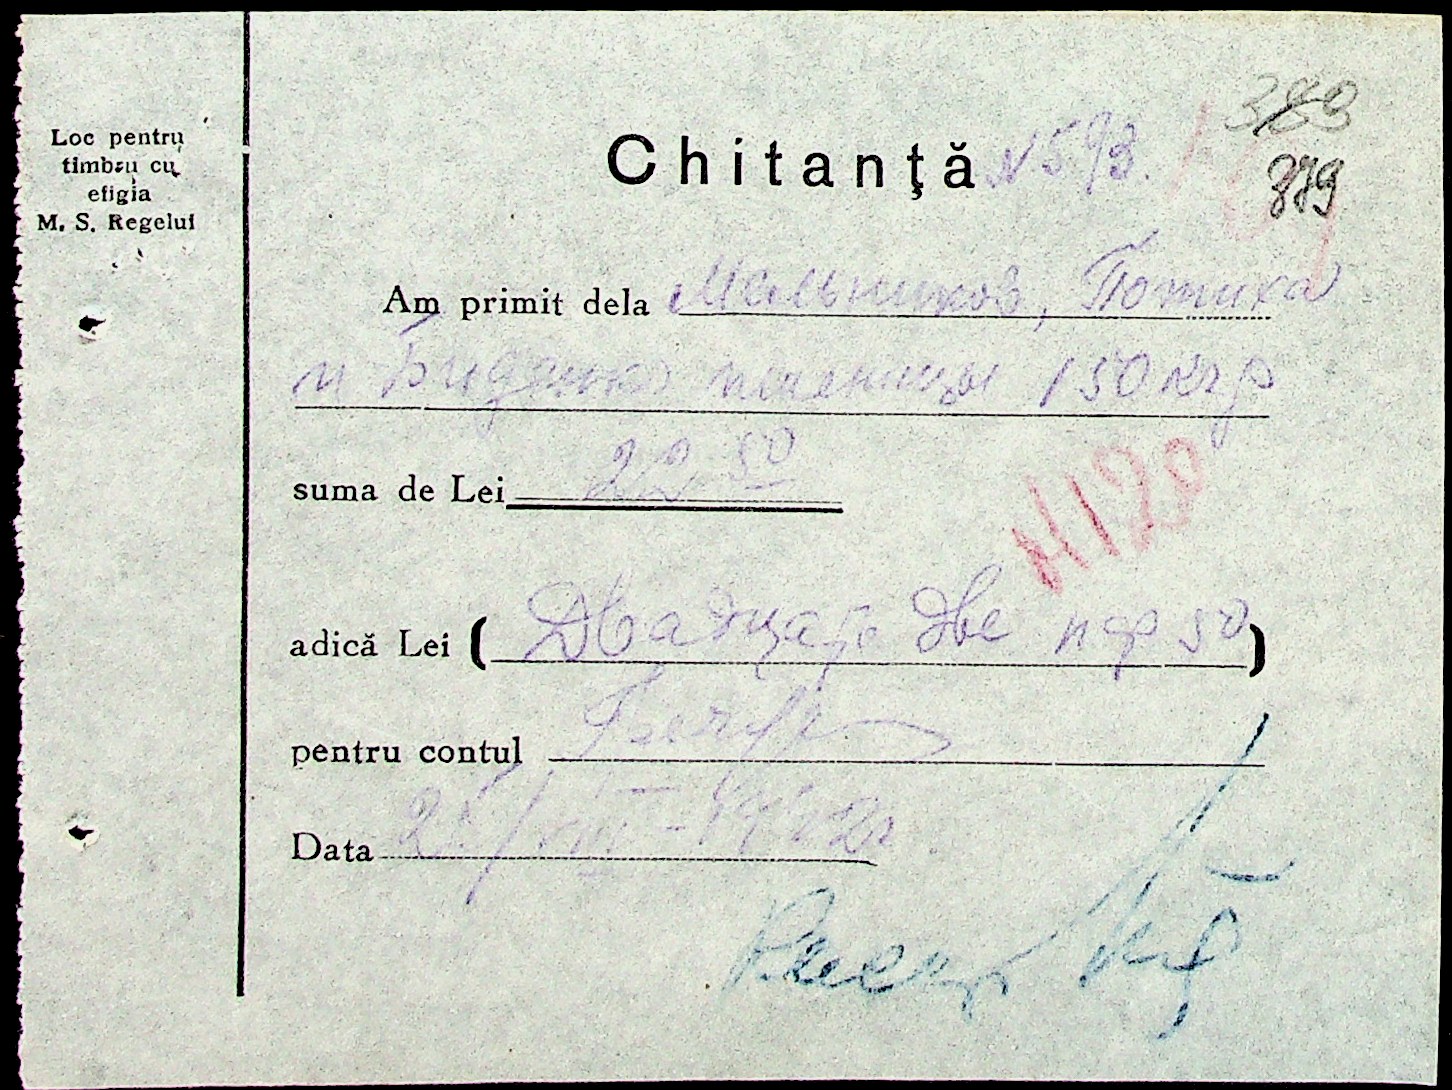 Loc pentru
timbru cu
efigia
M. S. Regelui
389
879
Chitanţă N 593.
Am primit dela Мельников, Потиха
и Биденко пшеницы 150 кгр
suma de Lei 22 50
N 120
adică Lei ( Двадцать две мар 50 )
pentru contul
Data 25/VIII-1942г